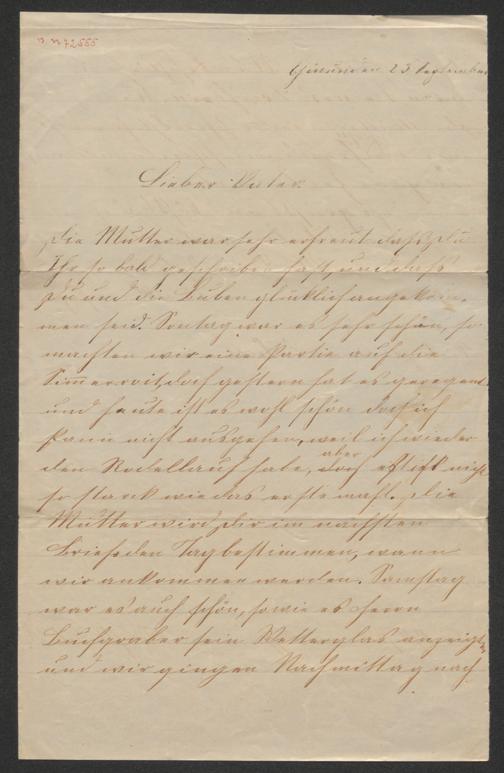 I. N. 72555
Gmunden 23 September
Lieber Vater.
Die Mutter war sehr erfreut daß Du
Ihr so bald geschrieben hast, und daß
Du und die Buben glücklich angekom-
men seid. Sontag war es sehr schön, so
machten wir eine Partie auf die
doch gestern hat es geregent
und heute ist es wohl schön doch ich
kann nicht ausgehen, weil ich wieder
den habe, aber es ist nicht
so starck wie das erstemahl. Die
Mutter wird Dir im nächsten
Briefe den Tag bestimmen, wann
wir ankommen werden. Samstag
war es auch schön, sowie es Herrn
Buchgraber sein Wetterglas anzeigte
und wir gingen Nachmittag nach